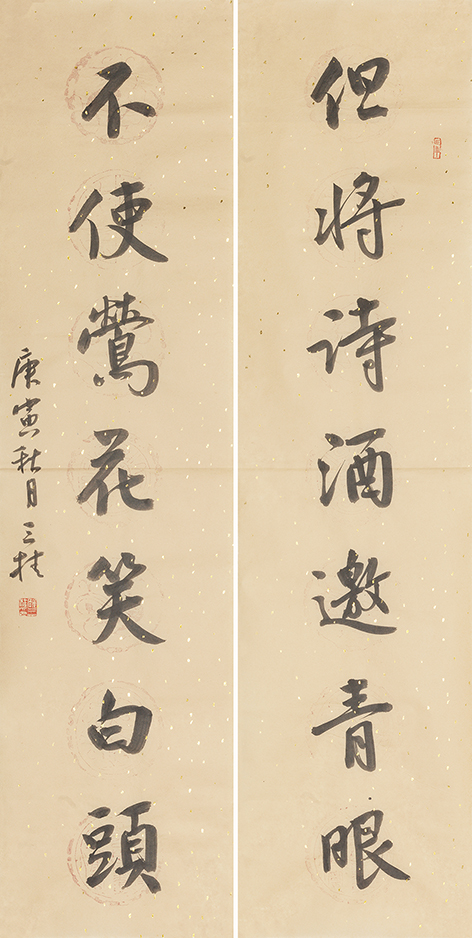 但将诗酒邀青眼
不使鶯花笑白頭
庚寅秋月三桂